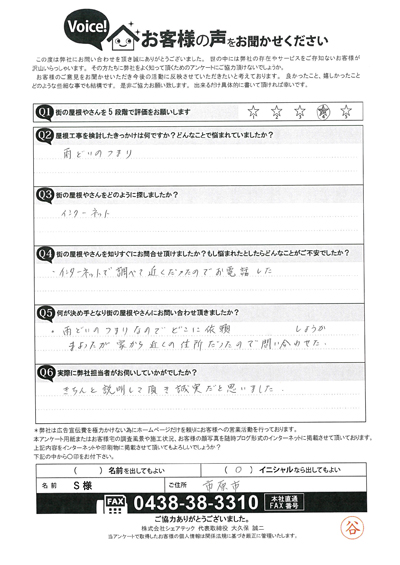 Voice! お客様の声をお聞かせください
この度は弊社にお問い合わせを頂き誠にありがとうございました。 世の中には弊社の存在やサービスをご存知ないお客様が
沢山いらっしゃいます。 その方たちに弊社をよく知って頂くためのアンケートにご協力頂けないでしょうか。
お客様のご意見をお聞かせいただき今後の活動に反映させていただきたいと考えております。 良かったこと、嬉しかったこと
どのような些細な事でも結構です。 是非ご協力お願い致します。 出来るだけ具体的に書いて頂ければ幸いです。
Q1 街の屋根やさんを5段階で評価をお願いします ☆ ☆ ☆ ☆ ☆
Q2 屋根工事を検討したきっかけは何ですか？どんなことで悩まれていましたか？
雨どいのつまり
Q3 街の屋根やさんをどのように探しましたか？
インターネット
Q4 街の屋根やさんを知りすぐにお問合せ頂けましたか？もし悩まれたとしたらどんなことがご不安でしたか？
・インターネットで調べて近くだったのでお電話した
Q5 何が決め手となり街の屋根やさんにお問い合わせ頂きましたか？
・雨どいのつまりなのでどこに依頼 しようか
まよったが家から近くの住所だったので問い合わせた.
Q6 実際に弊社担当者がお伺いしていかがでしたか？
きちんと説明して頂き誠実だと思いました.
＊弊社は広告宣伝費を極力かけない為にホームページだけを頼りにお客様への営業活動を行っております。
本アンケート用紙またはお客様宅の調査風景や施工状況、お客様の顔写真を随時ブログ形式のインターネットに掲載させて頂いております。
上記内容をインターネットや印刷物に掲載させて頂いてもよろしいでしょうか？
下記の中から〇印をお付下さい。
（ ）名前を出してもよい （ 〇 ）イニシャルなら出してもよい
名 前 S 様 ご住所 市原市
FAX 0438-38-3310 本社直通 FAX 番号
ご協力ありがとうございました。
株式会社シェアテック 代表取締役 大久保 誠二
当アンケートで取得したお客様の個人情報は関係法規に基づき厳正に管理いたします。
谷